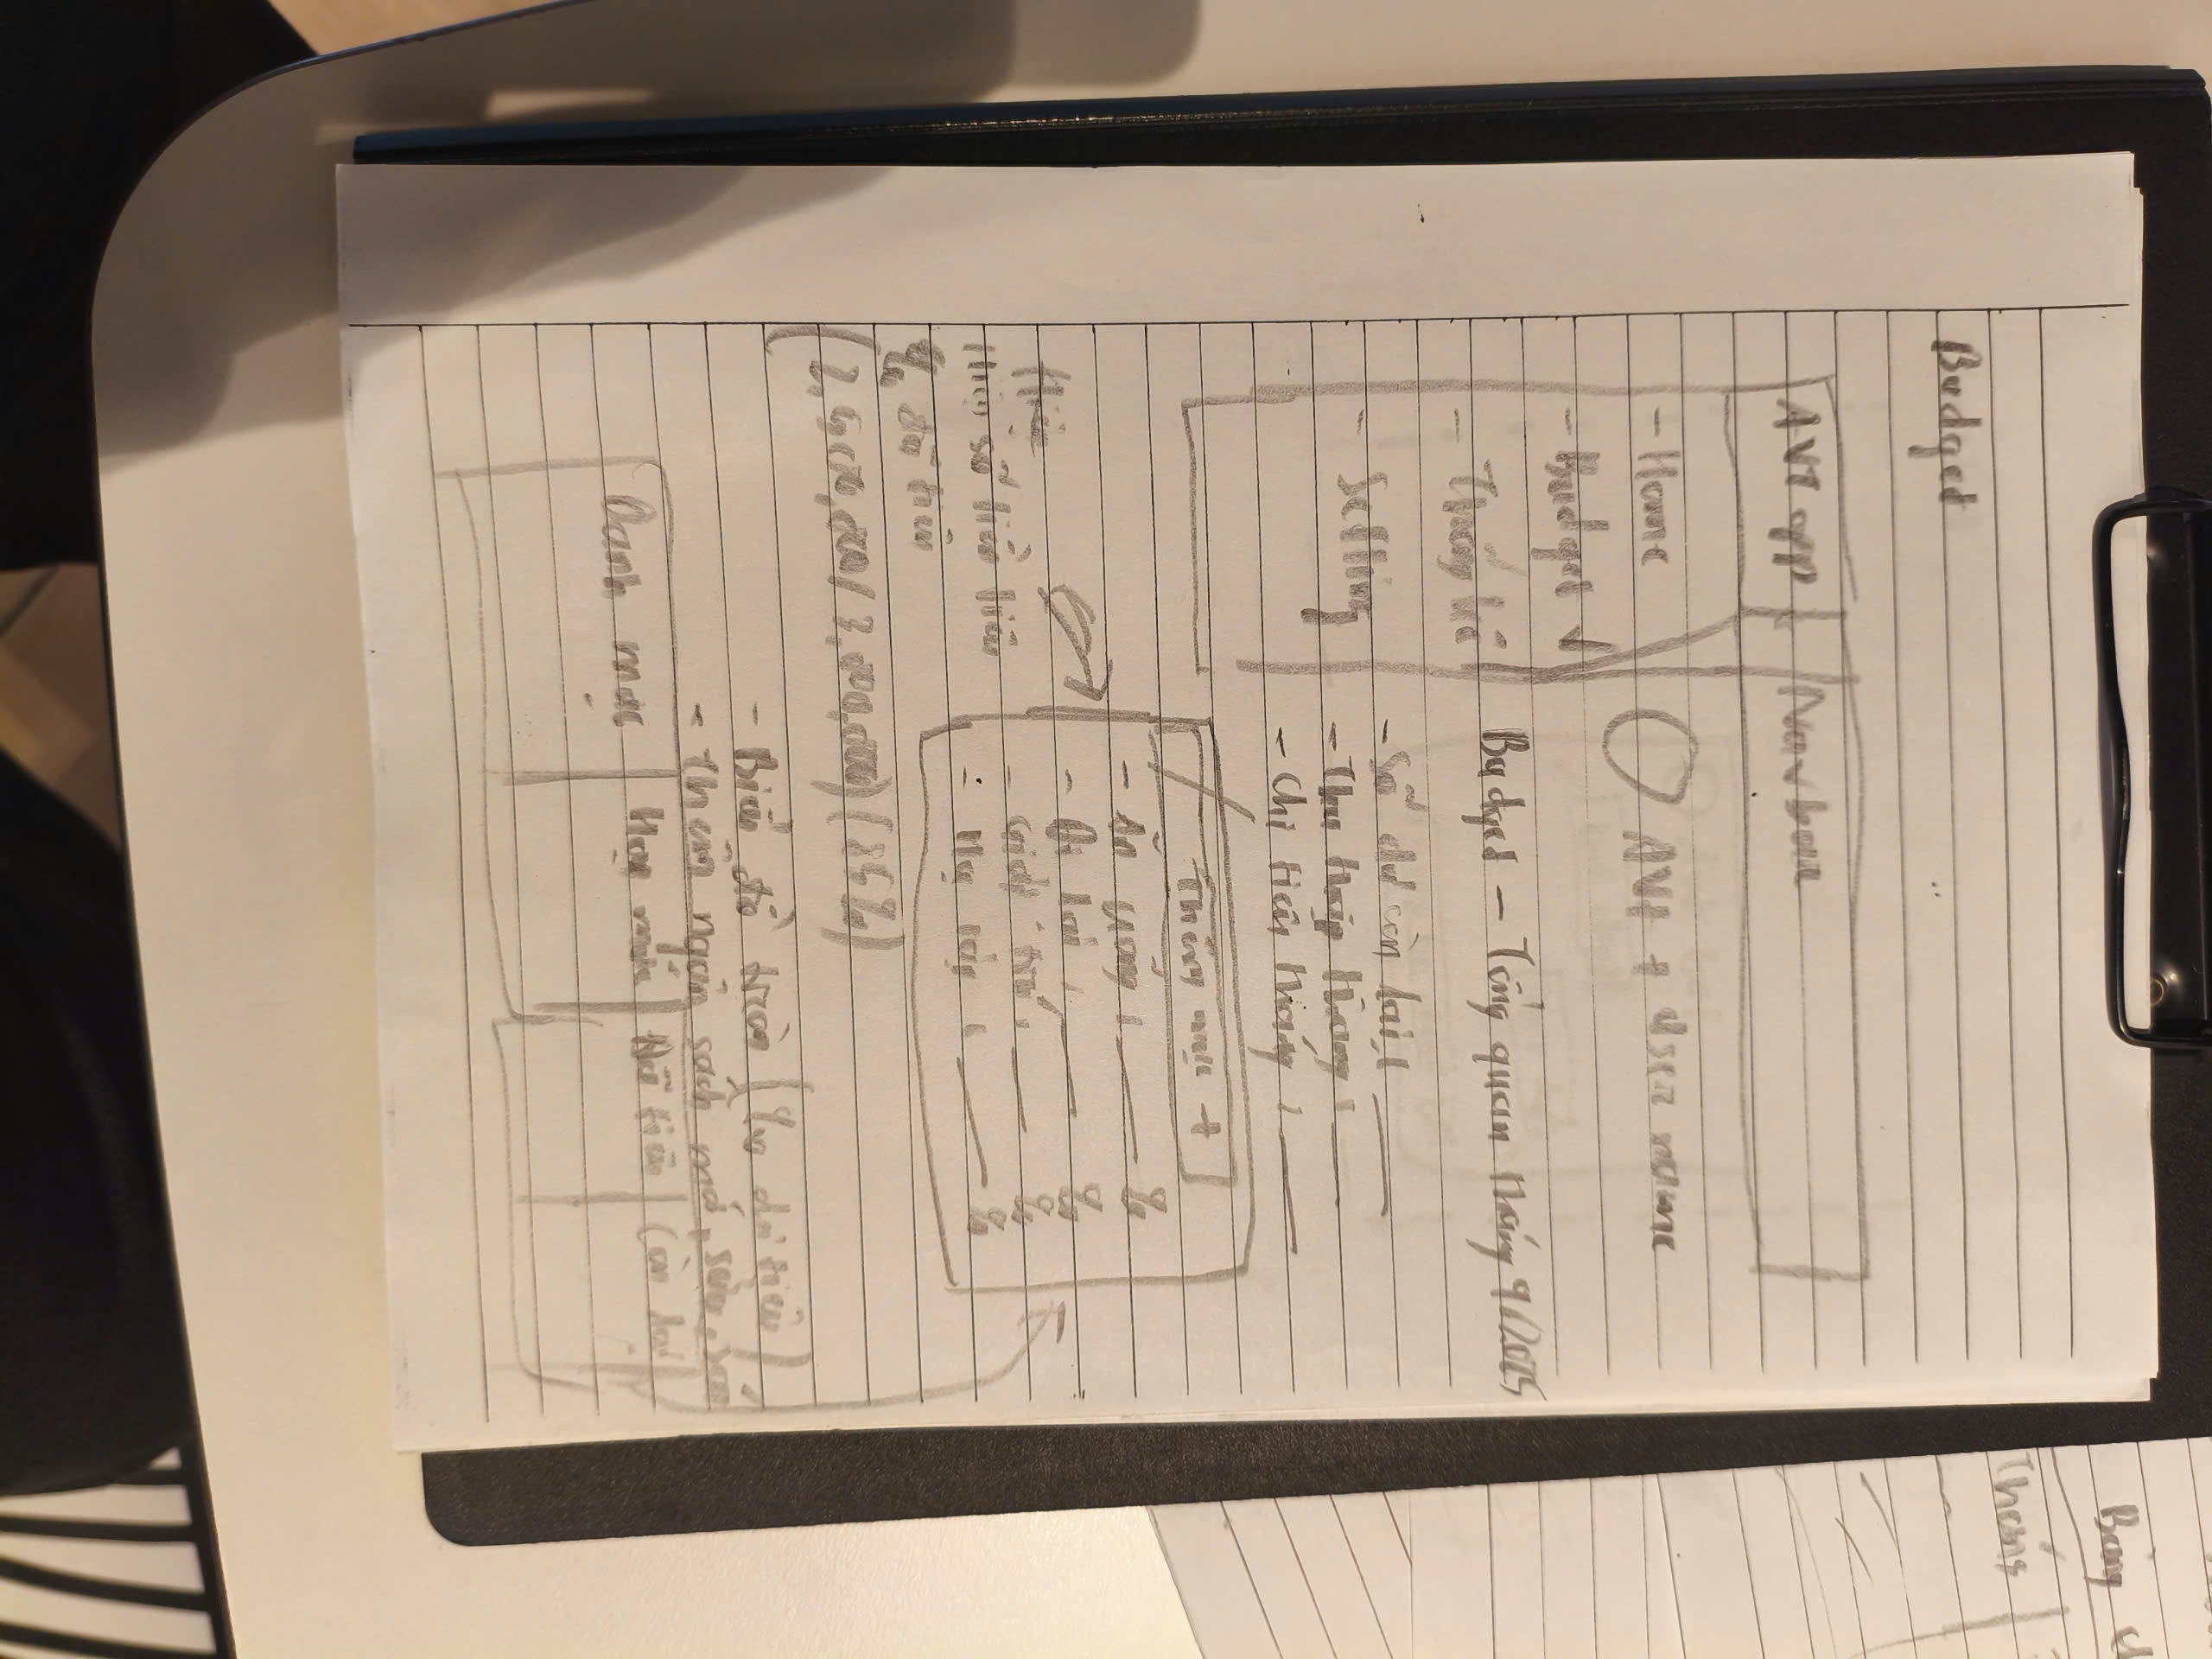 Budget
AVT app
Navbar
- Home
- Budget ✓
- Thống kê
- Setting
AVt + User name
Budget - Tổng quan tháng 9/2025
- Số dư còn lại:
- Thu thập tháng:
- Chi tiêu tháng:
Thêm mục +
- Ăn uống: %
- Đi lại: %
- Giải trí: %
%
Hiện số tiền tiêu
% đã tiêu
(85%)
- Biểu đồ tròn (% chi tiêu)
- Thêm ngân sách mới, sửa, xoá
Danh mục
Hạn mức
Đã tiêu
Còn lại
Bảng
Tháng